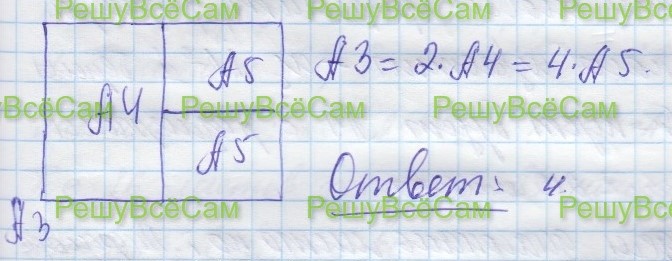 РешуВсёСам РешуВсёСам РешуВсёСам
A5 A3 = 2·A4 = 4·A5.
A4
ВсёСам РешуВсёСам РешуВсёСам
A5
Ответ: 4.
РешуВсёСам РешуВсёСам РешуВсёСам
A3